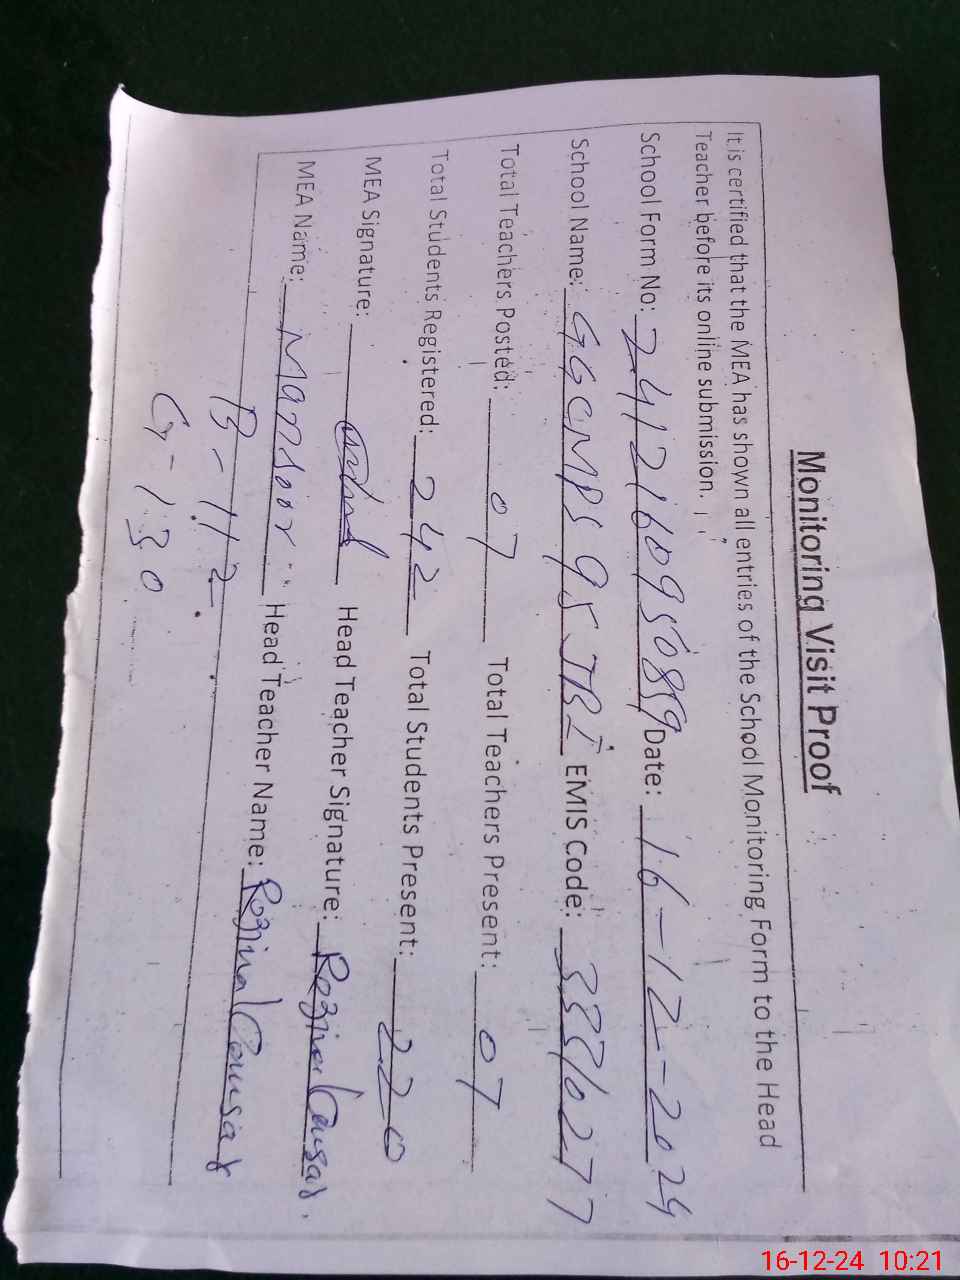 Monitoring Visit Proof
It is certified that the MEA has shown all entries of the School Monitoring Form to the Head
Teacher before its online submission.
School Form No: 241216095089 Date: 16-12-2024
School Name: GGCMPS 95 TBI EMIS Code: 33310277
Total Teachers Posted: 07 Total Teachers Present: 07
Total Students Registered: 242 Total Students Present: 220
MEA Signature: Head Teacher Signature: Rozina Causar.
MEA Name: Mansoor Head Teacher Name: Rozina Causar
B-112
G-130
16-12-24 10:21